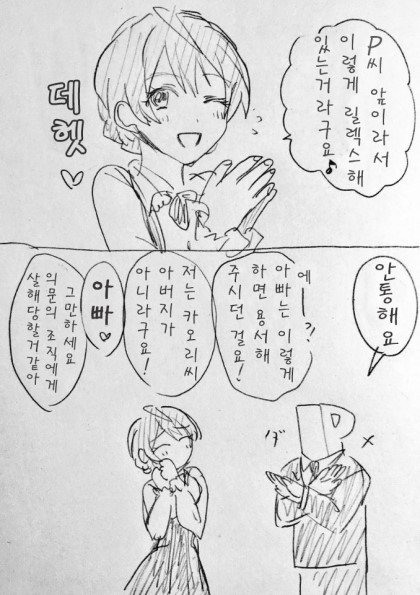 P씨 앞이라서
이렇게 릴렉스해
있는거라구요♪
데헷♡
안통해요
에ー?!
아빠는 이렇게
하면 용서해
주시던걸요!
저는 카오리씨
아버지가
아니라구요!
아빠♡
그만하세요
의문의 조직에게
살해당할거같아
P